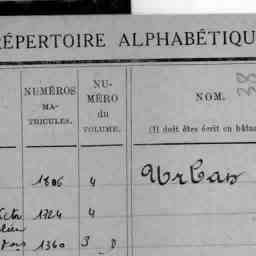 RÉPERTOIRE ALPHABÉTIQU
NUMÉROS
MA-
TRICULES.
NU-
MÉRO
du
VOLUME.
NOM.
(Il doit être écrit en bâta
38
1806 4 Urbas
1724 4
1360 3